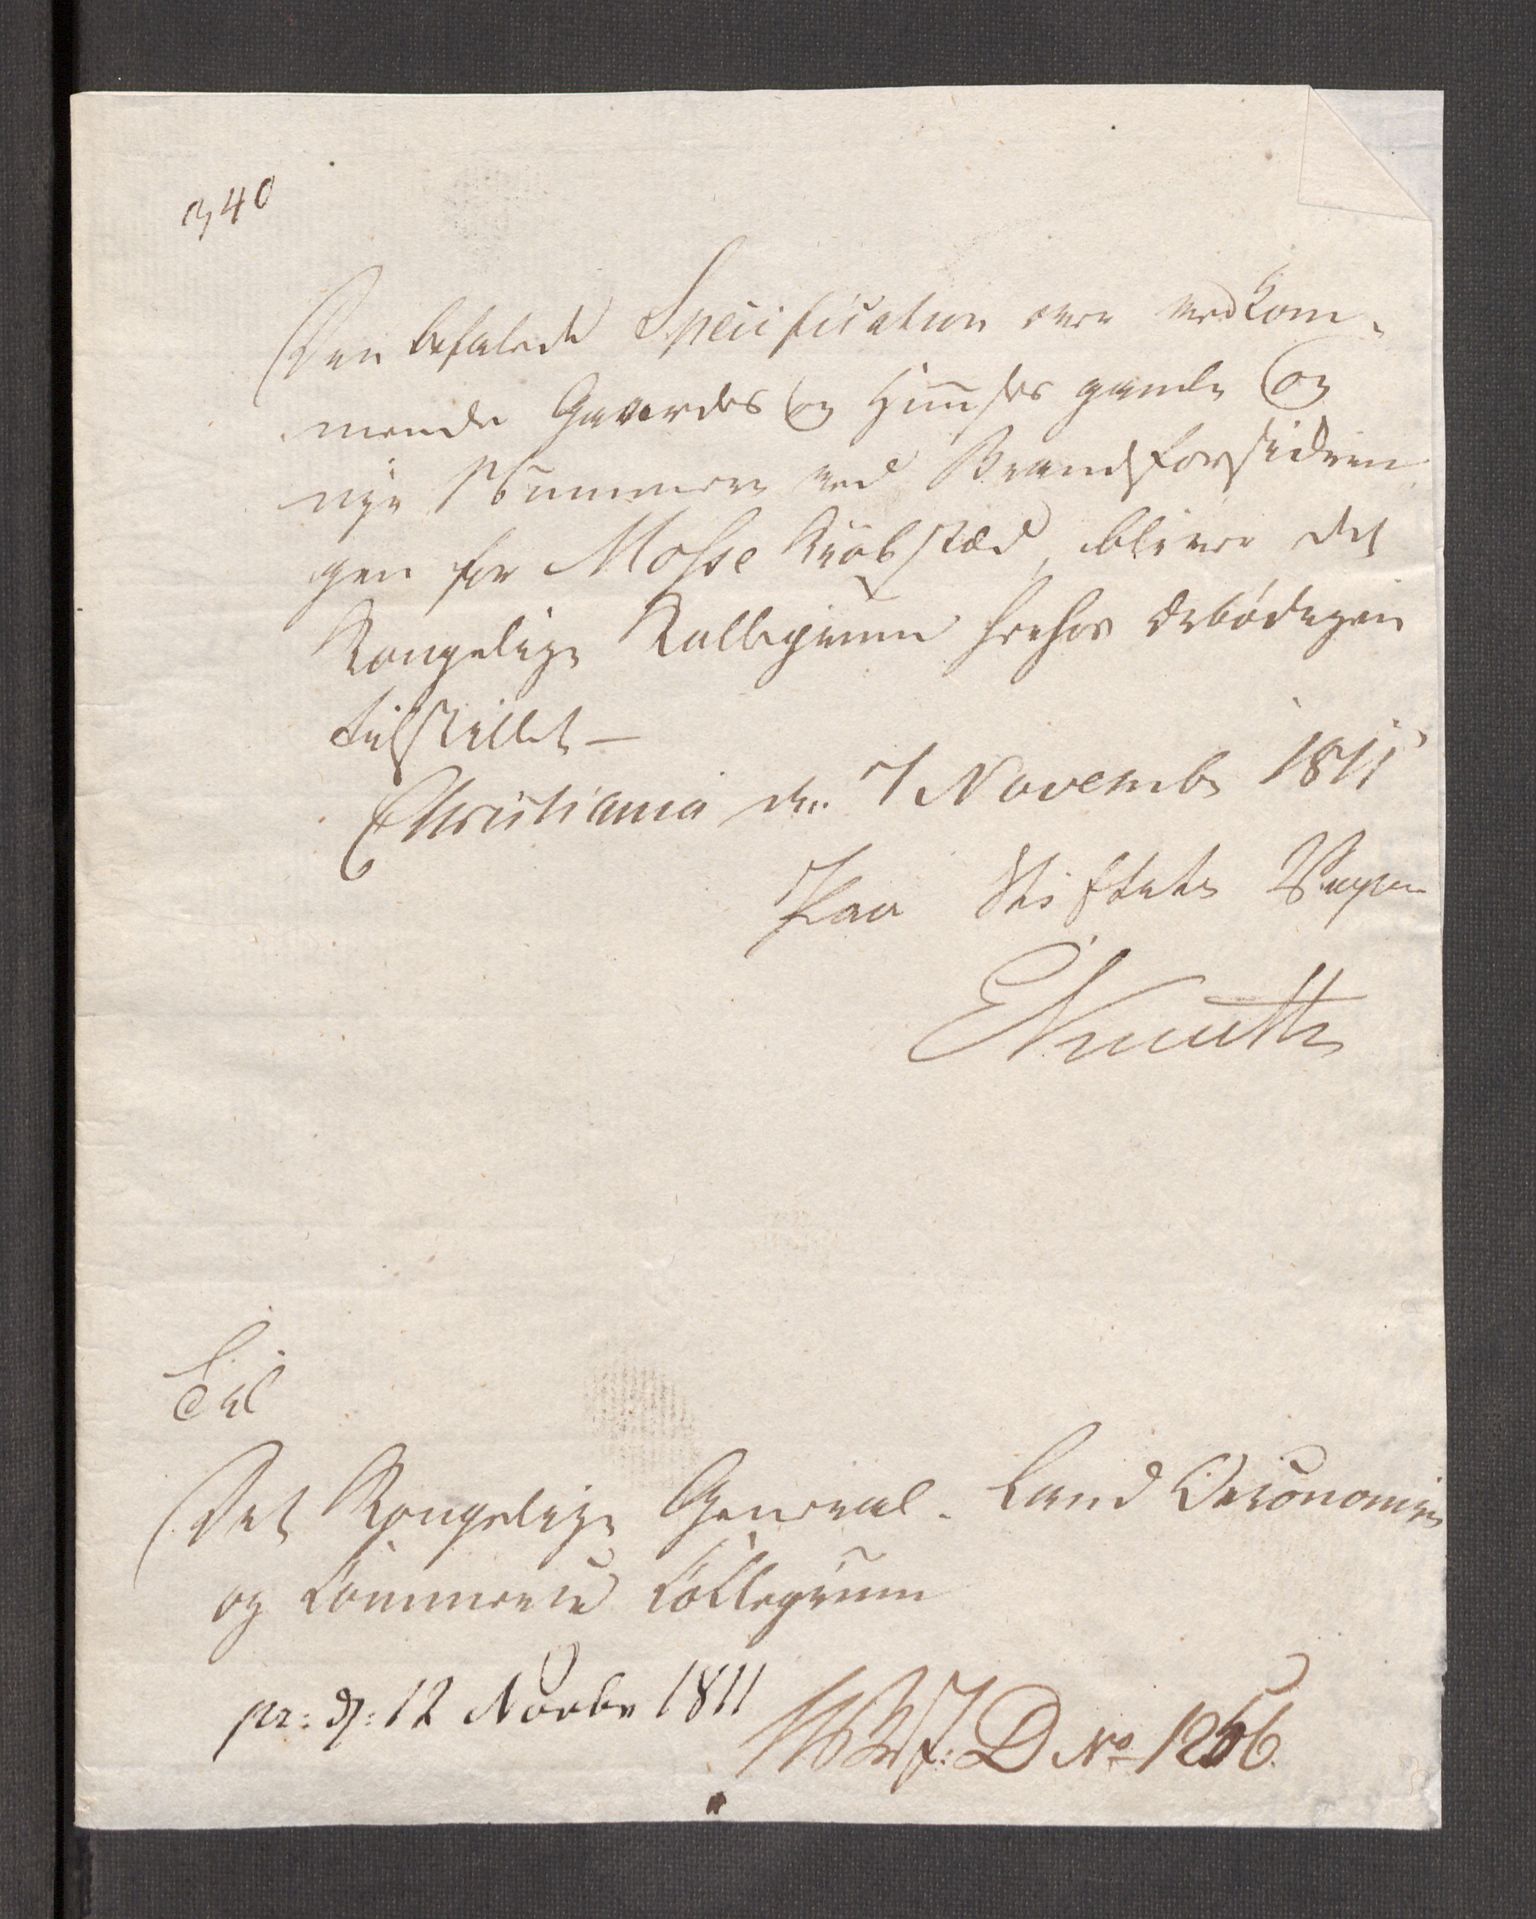 340
Den befalede Specification over vedkom-
mende Gaardes og Huuses gamle og
nye Nummere ved Brandforsikrin
gen for Mosse Kiöbstæd, bliver det
Kongelige Kollegium herhos ærbödigen
tilstillet —
Christiania den 7 Novembr 1811
Paa Stiftets Vegne
Knuth
Til
Det Kongelige General-Land Oeconomie
og Commerce Collegium
pr: d: 12 Novbr 1811
D No 1256.